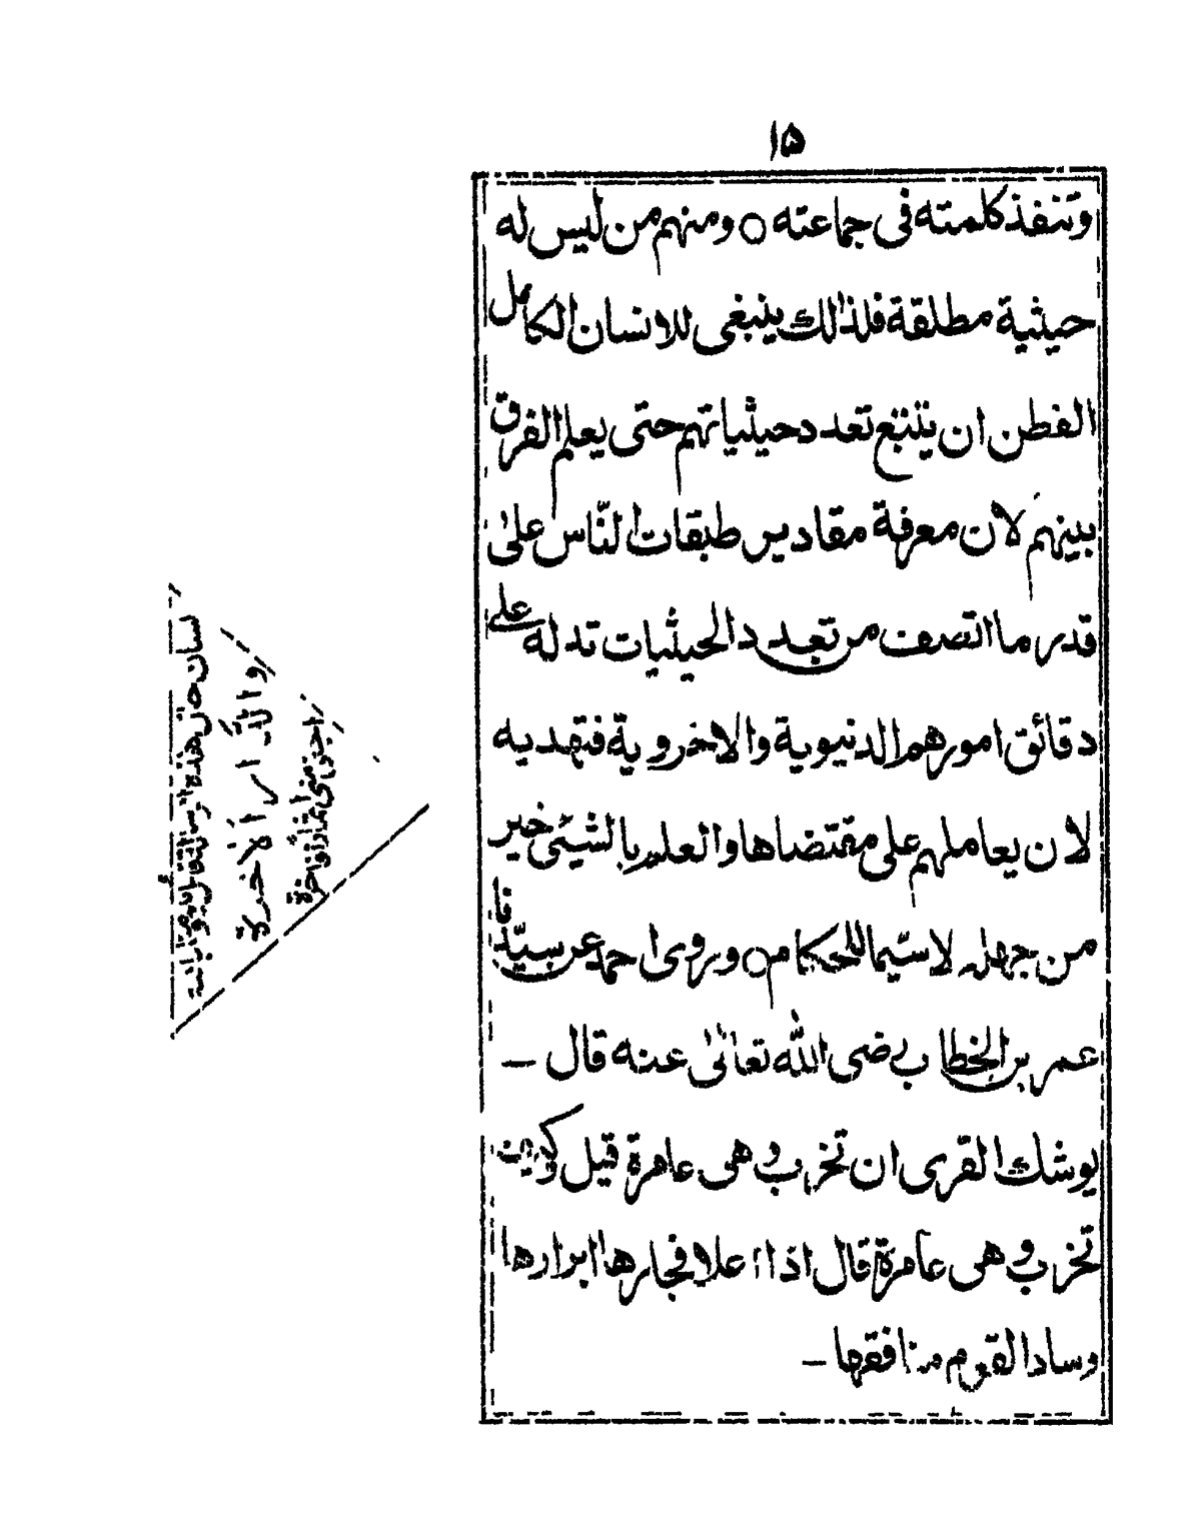 ١٥
وتنفذ كلمته فى جماعته ○ ومنهم من ليس له
حيثية مطلقة فلذالك ينبغى للانسان الكامل
الفطن ان يتتبع تعدد حيثياتهم حتى يعلم الفرق
بينهم لان معرفة مقادير طبقات الناس على
قدر ما اتصف من تعدد الحيثيات تدله على
دقائق امورهم الدنيوية والاخروية فتهديه
لان يعاملهم على مقتضاها والعلم بالشيئى خير
من جهله لاسيّما للحكام ○ وروى احمد عن سيّدنا
عمر بن الخطاب رضى الله تعالىٰ عنه قال –
يوشك القرى ان تخرب وهى عامرة قيل كيف
تخرب وهى عامرة قال اذا علا فجارها ابرارها
وساد القوم منافقها –
لسان حال هذه الرسالة
والدار الآخرة